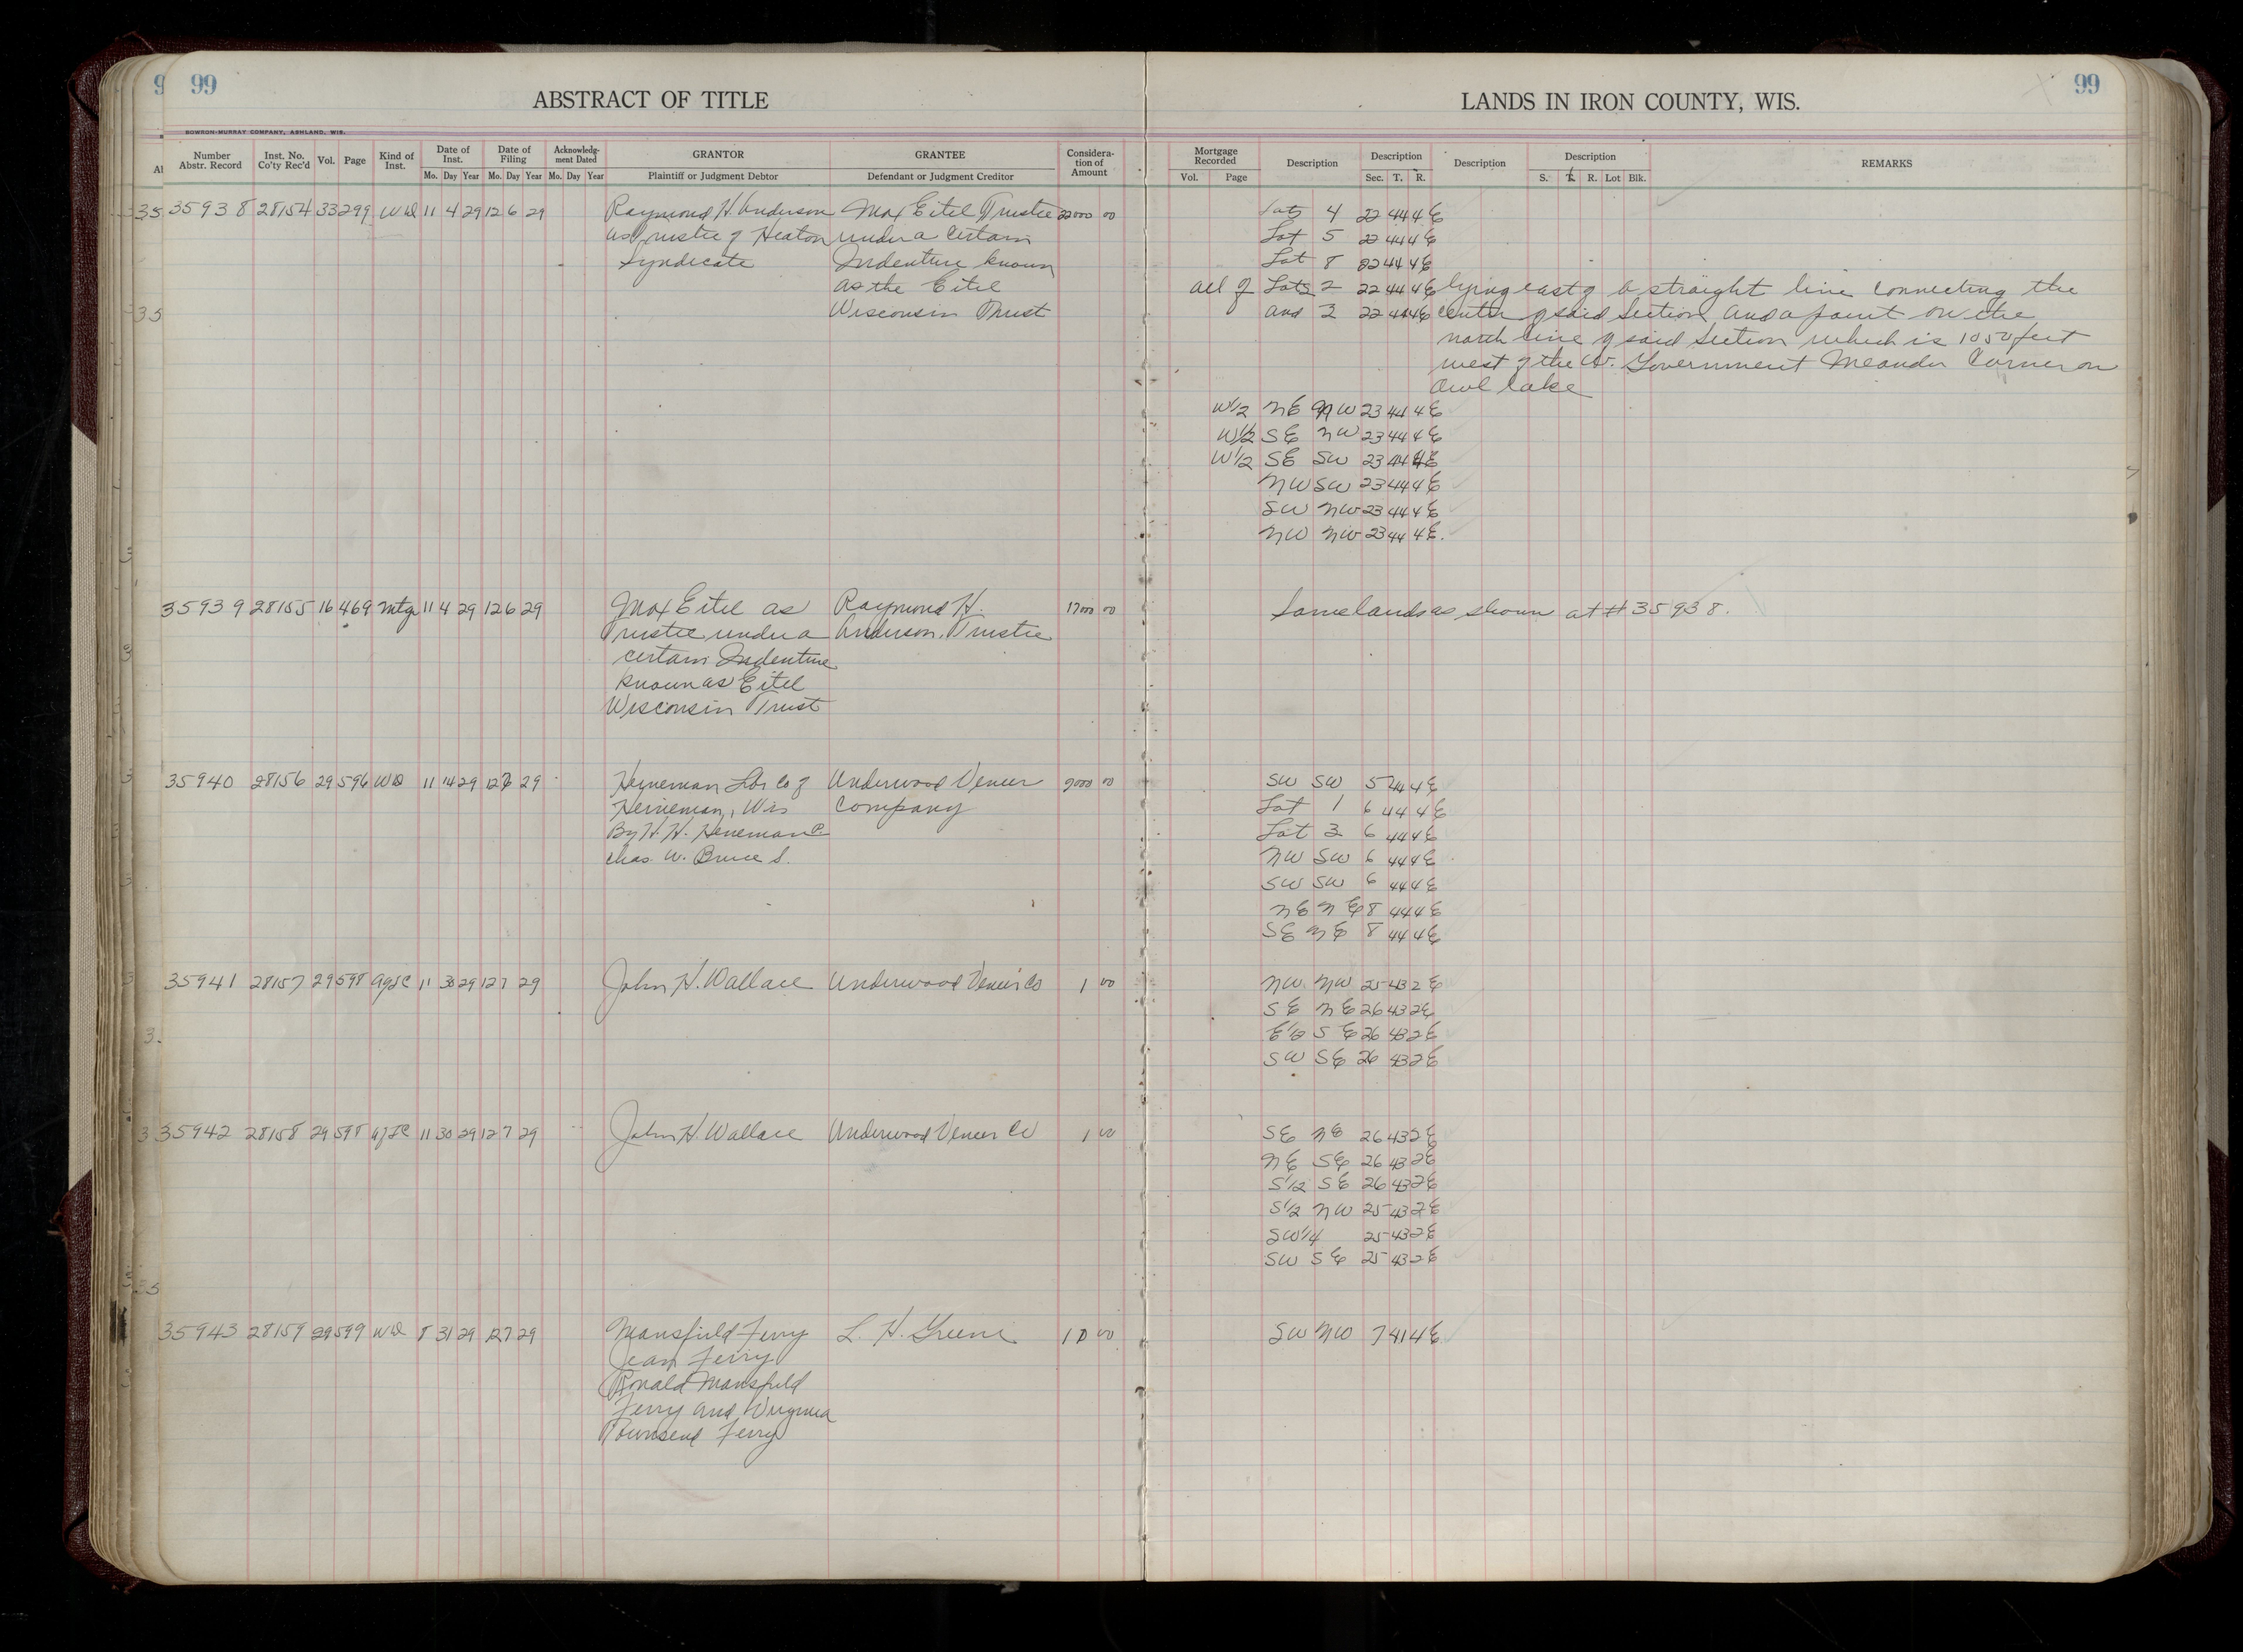 99
ABSTRACT OF TITLE
LANDS IN IRON COUNTY, WIS.
99
BOWRON-MURRAY COMPANY, ASHLAND, WIS.
Number Abstr. Record | Inst. No. Co'ty Rec'd | Vol. | Page | Kind of Inst. | Date of Inst. Mo. Day Year | Date of Filing Mo. Day Year | Acknowledg-ment Dated Mo. Day Year | GRANTOR Plaintiff or Judgment Debtor | GRANTEE Defendant or Judgment Creditor | Considera-tion of Amount | Mortgage Recorded Vol. Page | Description | Description Sec. T. R. | Description | Description S. T. R. Lot Blk. | REMARKS
35938 28154 33 299 WD 11 4 29 12 6 29 Raymond H. Anderson Max Eitel Trustee 22000 00 Lot 4 22 44 4E
as Trustee of Heaton under a certain Lot 5 22 44 4E
Syndicate Indenture known Lot 8 22 44 4E
as the Eitel all of Lots 2 22 44 4E lying east of a straight line connecting the
Wisconsin Trust and 3 22 44 4E center of said Section and a point on the
north line of said Section which is 1050 feet
west of the W. Government Meander Corner on
Owl lake
W1/2 NE NW 23 44 4E
W1/2 SE NW 23 44 4E
W1/2 SE SW 23 44 4E
NW SW 23 44 4E
SW NW 23 44 4E
NW NW 23 44 4E.
35939 28155 16 469 Mtg 11 4 29 12 6 29 Max Eitel as Raymond H. 17000 00 Same lands as shown at # 35938.
Trustee under a Anderson, Trustee
certain Indenture
known as Eitel
Wisconsin Trust
35940 28156 29 596 WD 11 14 29 12 6 29 Heineman Lbr Co of Underwood Veneer 9000 00 SW SW 5 44 4E
Heineman, Wis Company Lot 1 6 44 4E
By H. H. Heineman P. Lot 3 6 44 4E
Chas. W. Bruce S. NW SW 6 44 4E
SW SW 6 44 4E
NE NE 8 44 4E
SE NE 8 44 4E
35941 28157 29 598 Ag SC 11 30 29 12 7 29 John H. Wallace Underwood Veneer Co 1 00 NW NW 25 43 2E
SE NE 26 43 2E
E1/2 SE 26 43 2E
SW SE 26 43 2E
35942 28158 29 598 11 30 29 12 7 29 John H. Wallace Underwood Veneer Co 1 00 SE NE 26 43 2E
NE SE 26 43 2E
S1/2 SE 26 43 2E
S1/2 NW 25 43 2E
SW1/4 25 43 2E
SW SE 25 43 2E
35943 28159 29 599 WD 8 31 29 12 7 29 Mansfield Ferry L. H. Greene 10 00 SW NW 7 41 4E
Jean Ferry
Ronald Mansfield
Ferry and Virginia
Townsend Ferry